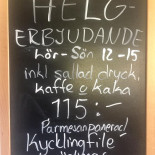 HELG-
ERBJUDANDE
Lör-Sön 12-15
inkl sallad, dryck,
kaffe o kaka
115:-
Parmesanpanerad
Kycklingfilé